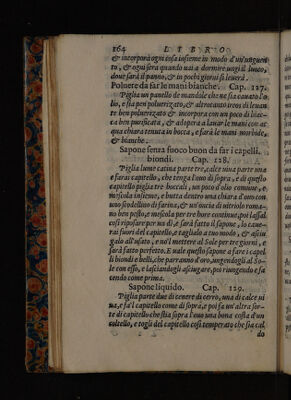 264 LIBRO
& incorpora ogni cosa insieme in modo d'un'unguen
to, & ogni sera quando vai a dormire ungi il luoco,
doue sarà il panno, & in pochi giorni si leuerà.
Poluere da far le mani bianche. Cap. 127.
Piglia un panello de mandole che ne sia cauato l'o
lio, e sia pen poluerizato, & altretanto ireos di leuan
te ben poluerizato & incorpora con un poco di biac-
ca ben purificata, & adopera a lauar le mani con ac
qua chiara tenuta in bocca, e farà le mani morbide,
& bianche.
Sapone senza fuoco buon da far i capelli
biondi. Cap. 128.
Piglia lume catina parte tre, calce viua parte una
e farai capitello, che tenga l'uno di sopra, e di questo
capitello piglia tre boccali, un poco d'olio commune, e
mescola insieme, e butta dentro una chiara d'ouo con
uno scodellino di farina, & un'oncia di vitriolo roma-
no ben pesto, e mescola per tre hore continue, poi lassal
così riposare per un dì, e sarà fatto il sapone, lo caue-
rai fuori del capitello, e taglialo a tuo modo, & asciu
galo all'usato, e no'l mettere al Sole per tre giorni, e
sarà fatto perfetto. E vale questo sapone a fare i capel
li biondi e belli, che parranno d'oro, ungendoli al So-
le con esso, e lasciandogli asciugare, poi riungendo e fa
cendo come prima.
Sapone liquido. Cap. 129.
Piglia parte due di cenere di cerro, una di calce vi
ua, e fa'l capitello come di sopra, e poi fa un'altra sor-
te di capitello che stia sopra l'uno una bona costa d'un
coltello, e togli del capitello così temperato che sia cal
do